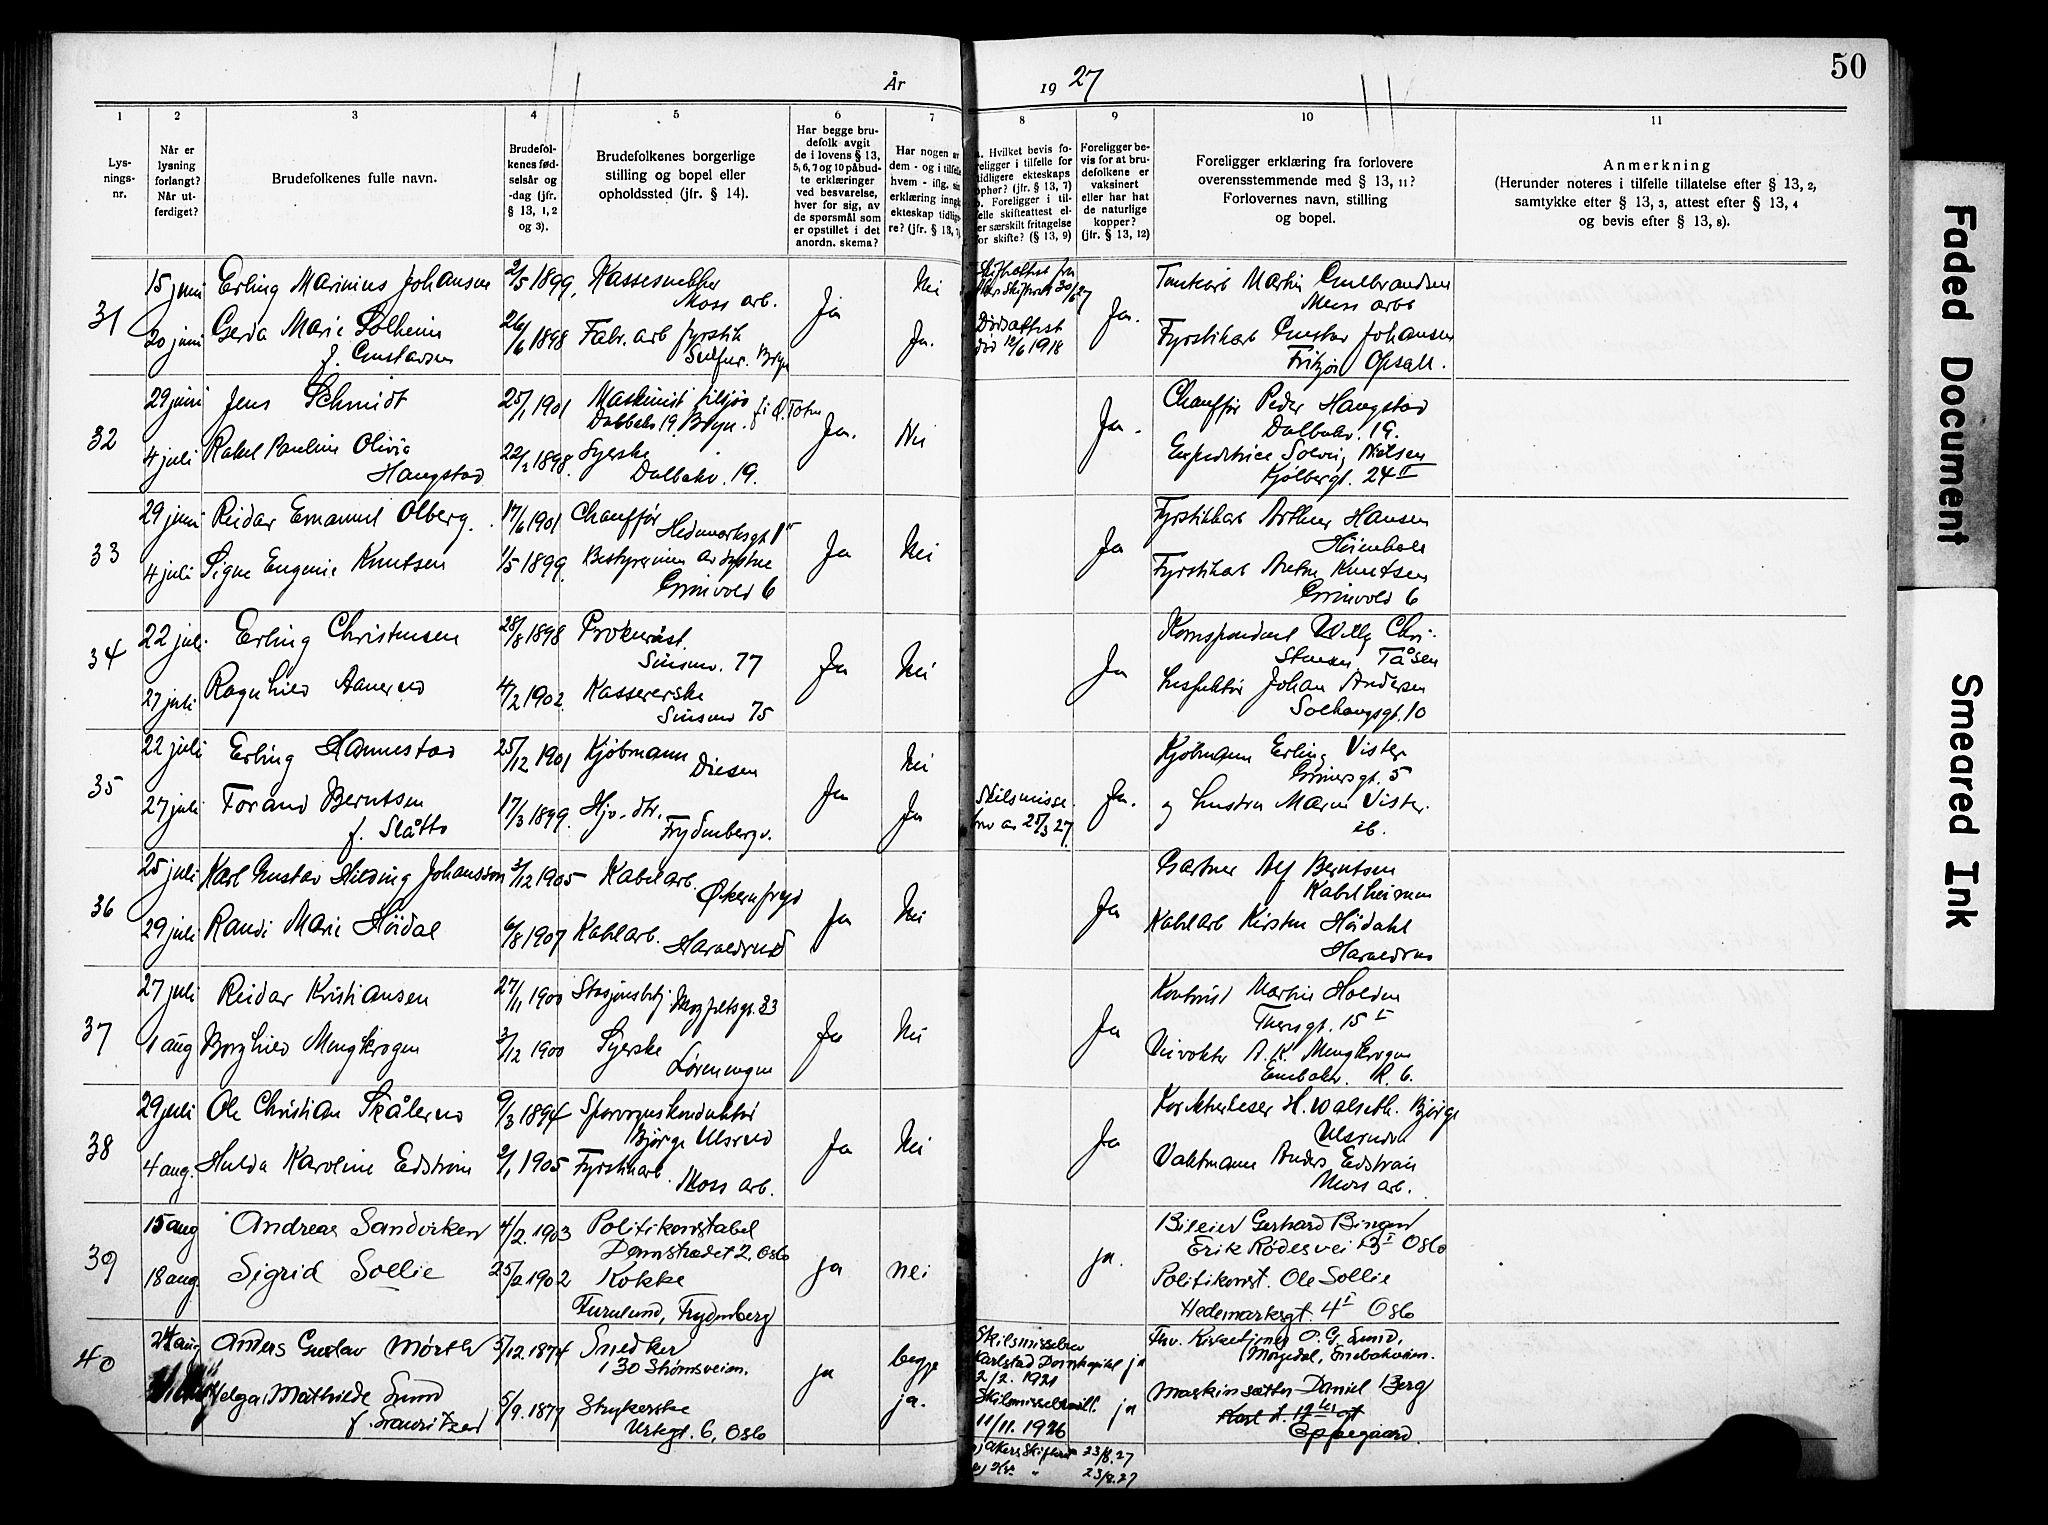 50
År 1927
1 2 3 4 5 6 7 8 9 10 11
Lys-
nings-
nr.
Når er
lysning
forlangt?
Når ut-
ferdiget?
Brudefolkenes fulle navn.
Brudefol-
kenes fød-
selsår og
-dag (jfr.
§ 13, 1, 2
og 3).
Brudefolkenes borgerlige
stilling og bopel eller
opholdssted (jfr. § 14).
Har begge bru-
defolk avgit
de i lovens § 13,
5, 6, 7 og 10 påbud-
te erklæringer
ved besvarelse,
hver for sig, av
de spørsmål som
er opstillet i det
anordn. skema?
Har nogen av
dem - og i tilfelle
hvem - iflg. sin
erklæring inngåt
ekteskap tidlige-
re? (jfr. § 13, 7)
a. Hvilket bevis fo-
religger i tilfelle for
tidligere ekteskaps
ophør? (jfr. § 13, 7)
b. Foreligger i til-
felle skifteattest el-
ler særskilt fritagelse
for skifte? (§ 13, 9)
Foreligger be-
vis for at bru-
defolkene er
vaksinert
eller har hat
de naturlige
kopper?
(jfr. § 13, 12)
Foreligger erklæring fra forlovere
overensstemmende med § 13, 11?
Forlovernes navn, stilling
og bopel.
Anmerkning
(Herunder noteres i tilfelle tillatelse efter § 13, 2,
samtykke efter § 13, 3, attest efter § 13, 4
og bevis efter § 13, 8).
31
15 juni Erling Marinius Johansen 2/5 1899, Moss arb. Ja Nei
20 juni Gerda Marie Solheim 26/6 1898 Fabr. arb fyrstik Ja. Dødsattest Ja.
f. Gustavsen død 12/6 1918
Martin Gulbrandsen
Moss arb
Fyrstikarb Gustav Johansen
32
29 juni Jens Schmidt 25/1 1901 Maskinist
Ja. Nei Ja.
4 juli Rakel Pauline Olivia 22/2 1898. Syerske
Haugstad Dalbakv. 19.
Chauffør Peder Haugstad
Dalbakv. 19.
Expeditrice Solveig Nielsen
Kjølberggt. 24 II
33
29 juni Reidar Emanuel Olberg. 17/6 1901 Chauffør
Hedmarksgt 1
Ja Nei Ja
4 juli Signe Eugenie Knutsen 1/5 1899
6
Fyrstikkarb Arthur Hansen
Fyrstikarb Knutsen
6
34
22 juli Erling Christensen 28/8 1898 Prokurist.
Sinsenv. 77
Ja Nei Ja
27 juli Ragnhild Aanerud 4/2 1902 Kassererske
75
Korrespondent Willy Chri-
stensen Tåsen
Inspektør Johan Andersen
Solhaugsgt. 10
35
22 juli Erling Hannestad 25/12 1901 Kjøbmann Disen Nei
Ja Ja.
27 juli Torand Berntsen 17/3 1899. Hjv. dtr. Ja Skilsmisse
f. Slåtto Frydenbergv. 25/3 27
Kjøbmann Erling Vister
5
og hustru Vister
ib.
36
25 juli Karl Gustav Hilding Johansson 3/12 1905 Kabelarb.
Økernfryd
Ja Nei Ja
29 juli Randi Marie Höidal 6/8 1907 Kabelarb.
Haraldrud
Gartner Alf Berntsen
Kabelheimen
Kabelarb Kirsten Höidahl
Haraldrud
37
27 juli Reidar Kristiansen 27/11 1900 33
Ja Nei Ja
1 aug Borghild Mengkrogen 3/12 1900 Syerske
Lørenvegen
Kontorist Martin Holden
15 I
Veivokter A. K. Mengkrogen
Enebakv. R. 6.
38
29 juli Ole Christian Skålerud 9/3 1894 Sporvognskonduktør
Bjørge Ulsrud
Ja Nei Ja
4 aug. Hulda Karoline Edström 2/1 1905 Fyrstikarb.
Moss arb.
Korrekturleser H. Walseth. Bjørge
Vaktmann Anders Edström
Moss arb.
39
15 aug Andreas Sandvirken 4/2. 1903 Politikonstabel
Damstrædet 2. Oslo
ja nei ja.
18 aug. Sigrid Sollie 25/2 1902 Kokke
Furulund, Frydenberg
Bileier Gerhard Bingen
Erik Rødes vei Oslo
Politikonst. Ole Sollie
Hedemarksgt. 4 I Oslo
40
24 aug Anders Gustav Mørth 5/12. 1874 Snedker
130 Strømsveien.
ja begge
ja.
Helga Mathilde Lund 5/9. 1877 Strykerske
f. Lauritzen Urtegt. 6, Oslo
Skilsmissebrev
Karlstad Domkapitel ja
2/2. 1921
Skilsmissebevill. ja
11/11. 1926
Akers Skifterett 23/8.27
23/8.27
Fhv. Kirketjener O. G. Lund,
Enebakveien.
Maskinsetter Daniel Berg
Oppegaard.
Faded Document
Smeared Ink